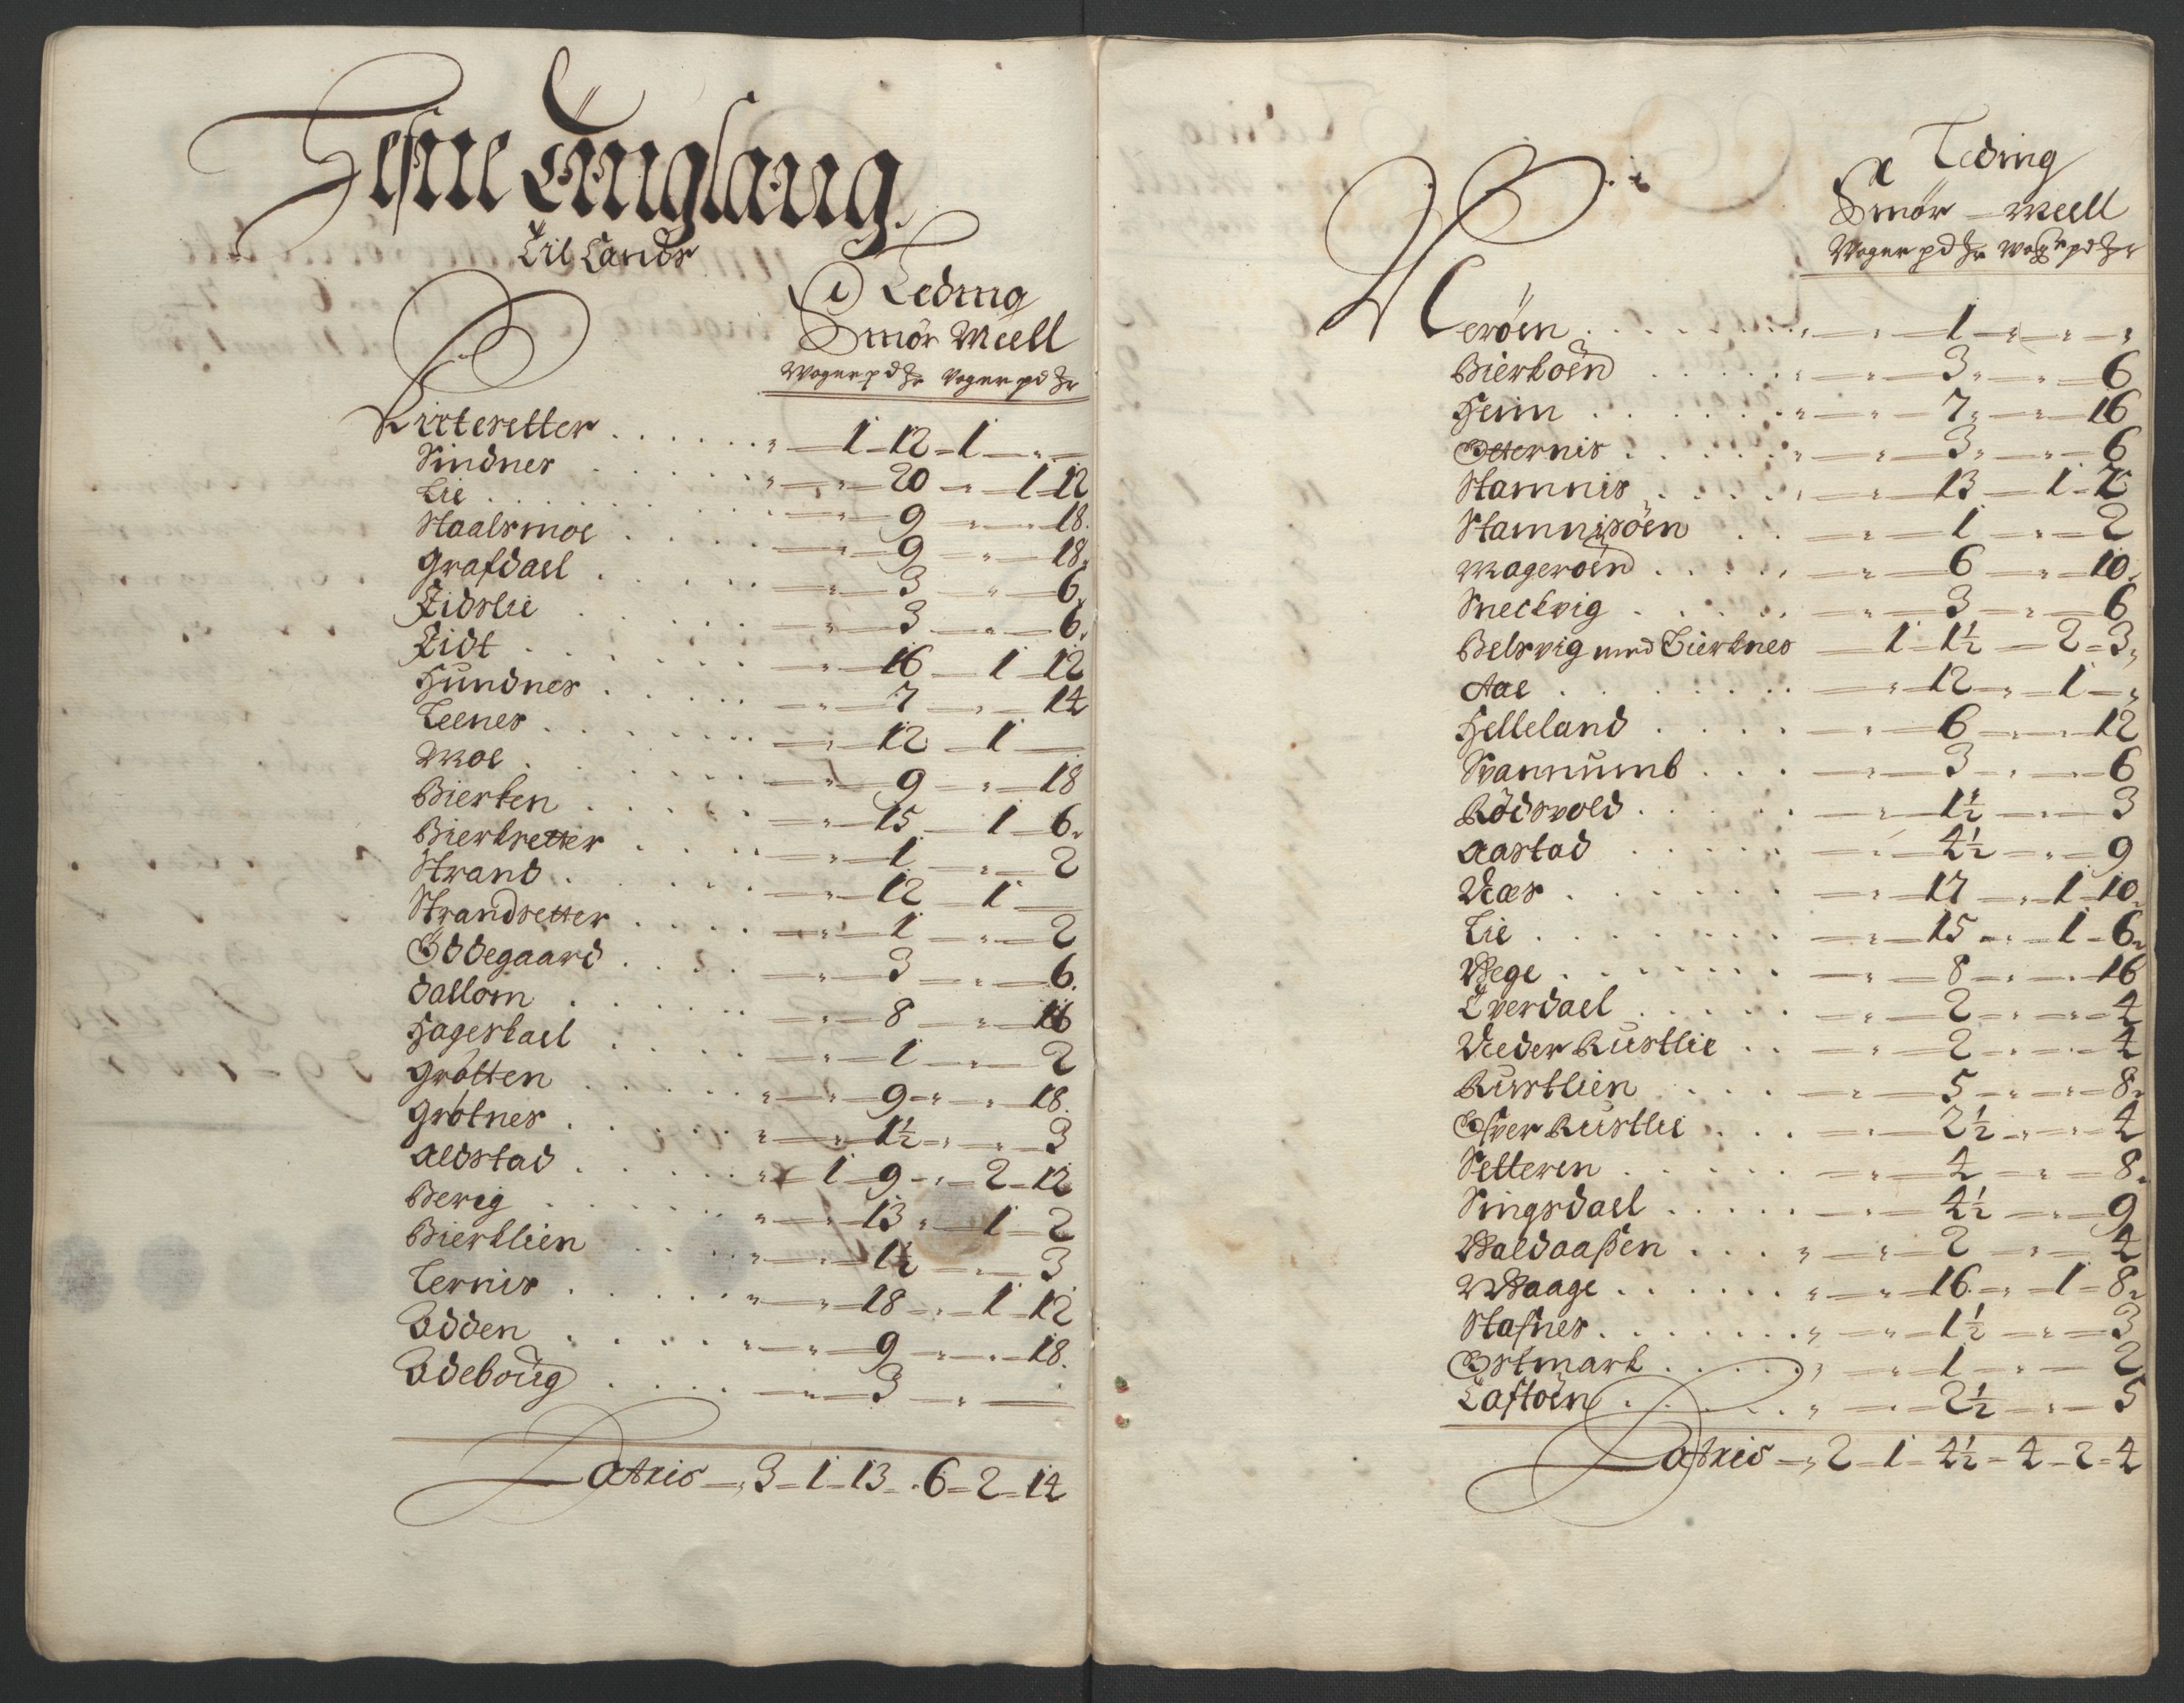 Hefne Tinglaug
Til Lands
I Teding
Smör Meell
Woger pd ℔r Voger pd ℔r
Kirkesetter . . . . . . „ — 1 - 12 - 1 — „ —
Sindnes . . . . . . „ — „ — 20 — „ — 1 - 12
Lie . . . . . . . — „ — 9 — „ — 18.
Staalsmoe . . . . . — „ — 9 — „ — 18.
Grafdael . . . . . — „ — 3 — „ — 6.
Eidslie . . . . . — „ — 3 — „ — 6.
Eidt . . . . . . — „ — 16 — 1 - 12
Hundnes . . . . . — „ — 7 — „ — 14
Leenes . . . . . — „ — 12 — 1 —
Moe . . . . . . — „ — 9 — „ — 18
Bierken . . . . . — „ — 15 — 1 — 6.
Bierksetter . . . . — „ — 1 — „ — 2
Strand . . . . . — „ — 12 — 1 —
Strandsetter . . . . — „ — 1 — „ — 2
Ödegaard . . . . — „ — 3 — „ — 6.
Dallom . . . . . — „ — 8 — „ — 16
Hagerkael . . . . — „ — 1 — „ — 2
Grötten . . . . . „ — „ — 9 — „ — „ — 18.
Grötnes . . . . . „ — „ — 1½ — „ — „ — 3
Aldstad . . . . . „ — 1 - 9 — „ — 2 - 12
Berig . . . . . . „ — „ — 13 „ — 1 — 2
Bierklien . . . . „ — „ — 1½ — „ — 3
Lernis . . . . . „ — „ — 18 — „ — 1 - 12
Odden . . . . . „ — „ — 9 — „ — „ — 18.
Odeboug . . . . — „ — 3 — „ —
Latris — „ 3 - 1 - 13 - „ 6 - 2 - 14
I Teding
Smör — Meell
Woger pd ℔r Woger pd ℔r
Neröen . . . . . . . „ — „ — 1 — „ — „ — „
Bierköen . . . . . „ — „ — 3 „ — „ — 6
Heim . . . . . . „ — „ — 7 „ — „ — 16
Otternis . . . . . „ — „ — 3 „ — „ — 6
Stamnis . . . . . „ — „ — 13 — 1 - 2
Stamnisöen . . — „ — 1 — „ — 2
Mageröen . . . . . — „ — 6 — „ — 10.
Sneckvig . . . . . — „ — 3 — „ — 6
Belsvig med Bierknes — 1 - 1½ — 2 - 3 „
Aae . . . . . . . — „ — 12 — „ — 1 — „
Helleland . . . . — „ — 6 — „ — 12
Svannumb . . . — „ — 3 — „ — 6
Rödsvold . . . . . — „ — 1½ — „ — 3
Aastad . . . . . — „ — 4½ — „ — 9
Næs . . . . . . — „ — 17 — „ — 1 - 10.
Lie . . . . . . . — „ — 15 — „ — 1 - 6.
Wege . . . . . . — „ — 8 — „ — „ 16
Tverdael . . . . . — „ — 2 — „ — 4
Neder Rustlie . . — „ — 2 — „ — 4
Rustlien . . . . — „ — 5 — „ — 8.
Öfver Rustlie . . . — „ — 2½ — „ — 4
Setteren . . . . . — „ — 4 — „ — 8.
Singsdael . . . . . — „ — 4½ — „ — 9
Valdaasen . . . „ — „ — 2 — „ — 4
Waage . . . . . . „ — „ — 16 „ — 1 - 8.
Stafnes . . . . . . „ — „ — 1½ — „ — 3
Ostmark . . . . „ — „ — 1 — „ — 2
Taftöen . . . . . „ — „ — 2½ — „ — 5
Latris — „ 2 - 1 - 4½ - 4 - 2 - 4